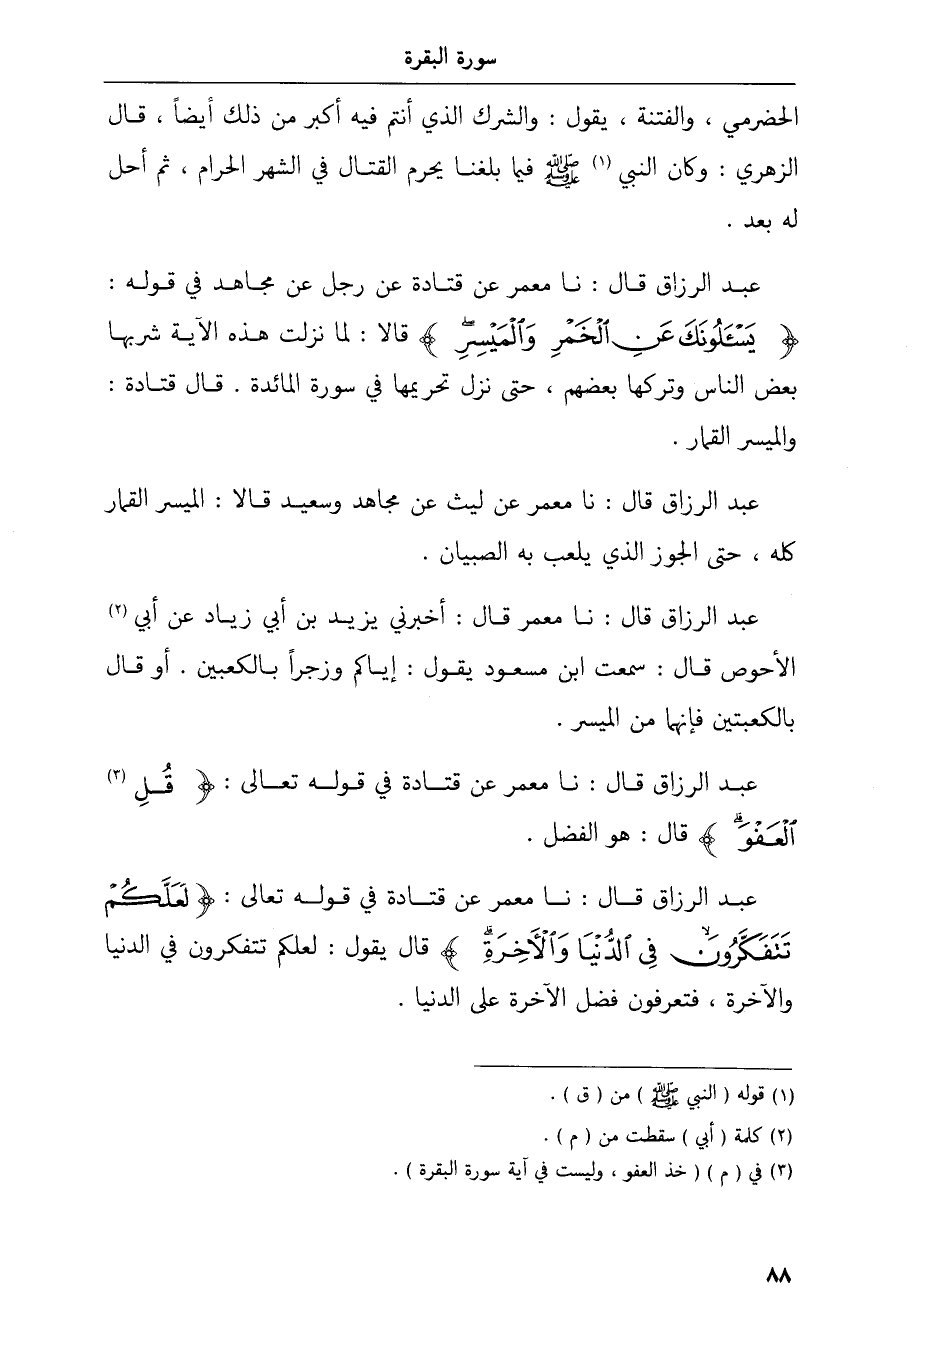 سورة البقرة
الحضرمي ، والفتنة ، يقول : والشرك الذي أنتم فيه أكبر من ذلك أيضاً ، قال
الزهري : وكان النبي (١) ﷺ فيما بلغنا يحرم القتال في الشهر الحرام ، ثم أحل
له بعد .
عبد الرزاق قال : نا معمر عن قتادة عن رجل عن مجاهد في قوله :
﴿ يَسْـَٔلُونَكَ عَنِ ٱلْخَمْرِ وَٱلْمَيْسِرِۖ ﴾ قالا : لما نزلت هذه الآية شربها
بعض الناس وتركها بعضهم ، حتى نزل تحريمها في سورة المائدة . قال قتادة :
والميسر القمار .
عبد الرزاق قال : نا معمر عن ليث عن مجاهد وسعيد قالا : الميسر القمار
كله ، حتى الجوز الذي يلعب به الصبيان .
عبد الرزاق قال : نا معمر قال : أخبرني يزيد بن أبي زياد عن أبي (٢)
الأحوص قال : سمعت ابن مسعود يقول : إياكم وزجراً بالكعبين . أو قال
بالكعبتين فإنها من الميسر .
عبد الرزاق قال : نا معمر عن قتادة في قوله تعالى : ﴿ قُلِ (٣)
ٱلْعَفْوَۗ ﴾ قال : هو الفضل .
عبد الرزاق قال : نا معمر عن قتادة في قوله تعالى : ﴿ لَعَلَّكُمْ
تَتَفَكَّرُونَۙ فِى ٱلدُّنْيَا وَٱلْأَخِرَةِۗ ﴾ قال يقول : لعلكم تتفكرون في الدنيا
والآخرة ، فتعرفون فضل الآخرة على الدنيا .
(١) قوله ( النبي ﷺ ) من ( ق ) .
(٢) كلمة ( أبي ) سقطت من ( م ) .
(٣) في ( م ) ( خذ العفو ، وليست في آية سورة البقرة ) .
٨٨